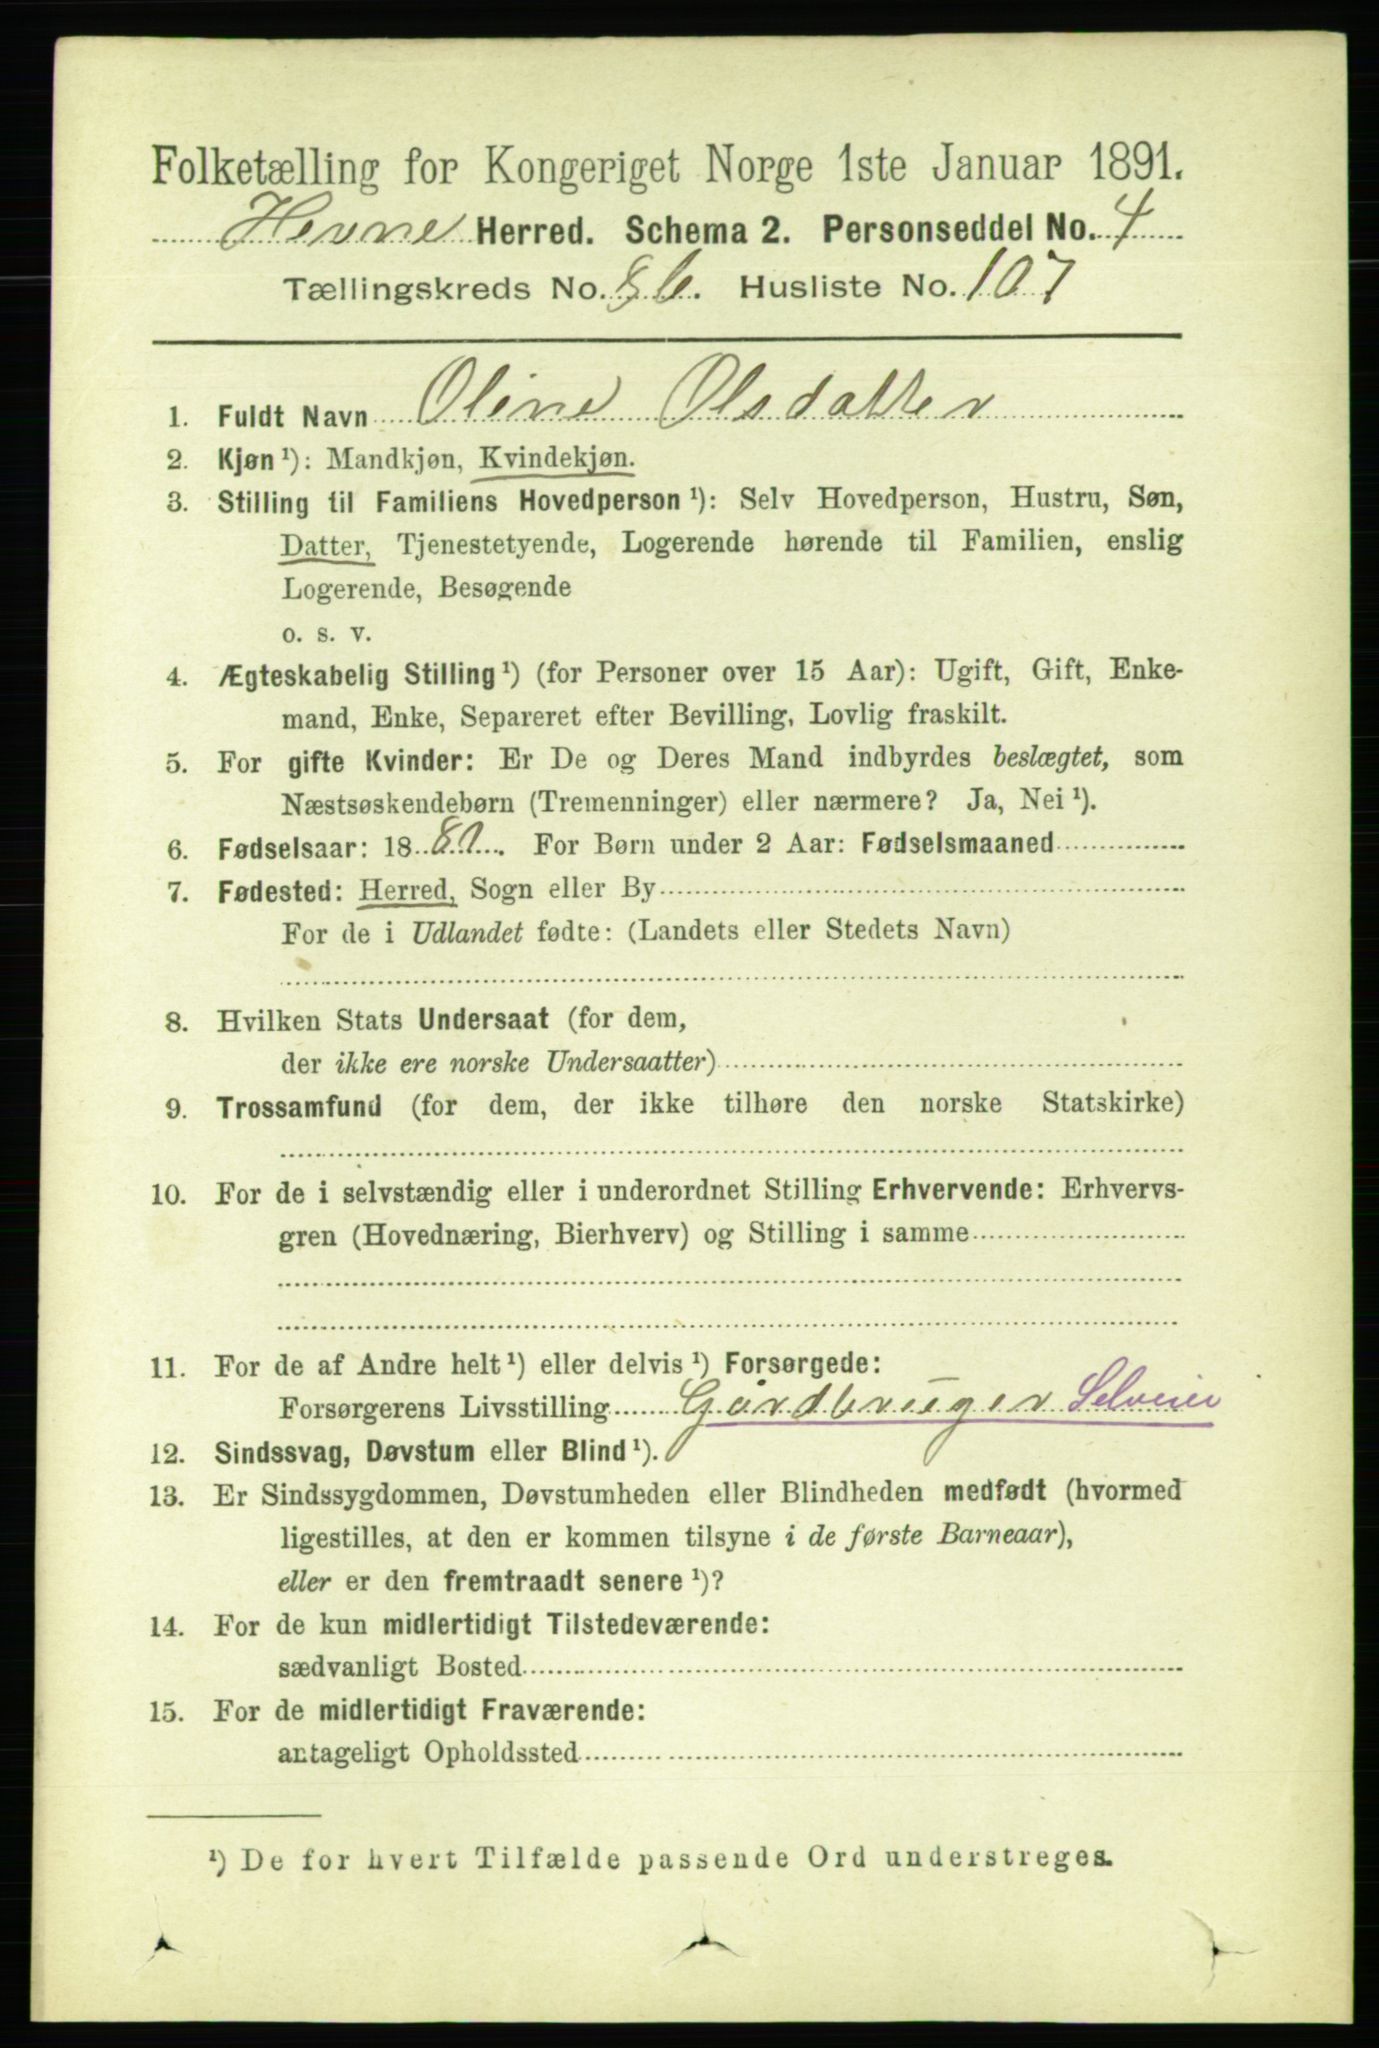 Folketælling for Kongeriget Norge 1ste Januar 1891.
Hevne Herred. Schema 2. Personseddel No. 4
Tællingskreds No. 8 b. Husliste No. 107
1. Fuldt Navn Oline Olsdatter
2. Kjøn ¹): Mandkjøn, Kvindekjøn.
3. Stilling til Familiens Hovedperson ¹): Selv Hovedperson, Hustru, Søn,
Datter, Tjenestetyende, Logerende hørende til Familien, enslig
Logerende, Besøgende
o. s. v.
4. Ægteskabelig Stilling ¹) (for Personer over 15 Aar): Ugift, Gift, Enke-
mand, Enke, Separeret efter Bevilling, Lovlig fraskilt.
5. For gifte Kvinder: Er De og Deres Mand indbyrdes beslægtet, som
Næstsøskendebørn (Tremenninger) eller nærmere? Ja, Nei ¹).
6. Fødselsaar: 18 81. For Børn under 2 Aar: Fødselsmaaned
7. Fødested: Herred, Sogn eller By
For de i Udlandet fødte: (Landets eller Stedets Navn)
8. Hvilken Stats Undersaat (for dem,
der ikke ere norske Undersaatter)
9. Trossamfund (for dem, der ikke tilhøre den norske Statskirke)
10. For de i selvstændig eller i underordnet Stilling Erhvervende: Erhvervs-
gren (Hovednæring, Bierhverv) og Stilling i samme
11. For de af Andre helt ¹) eller delvis ¹) Forsørgede:
Forsørgerens Livsstilling Gårdbruger Selveier
12. Sindssvag, Døvstum eller Blind ¹).
13. Er Sindssygdommen, Døvstumheden eller Blindheden medfødt (hvormed
ligestilles, at den er kommen tilsyne i de første Barneaar),
eller er den fremtraadt senere ¹)?
14. For de kun midlertidigt Tilstedeværende:
sædvanligt Bosted
15. For de midlertidigt Fraværende:
antageligt Opholdssted
¹) De for hvert Tilfælde passende Ord understreges.